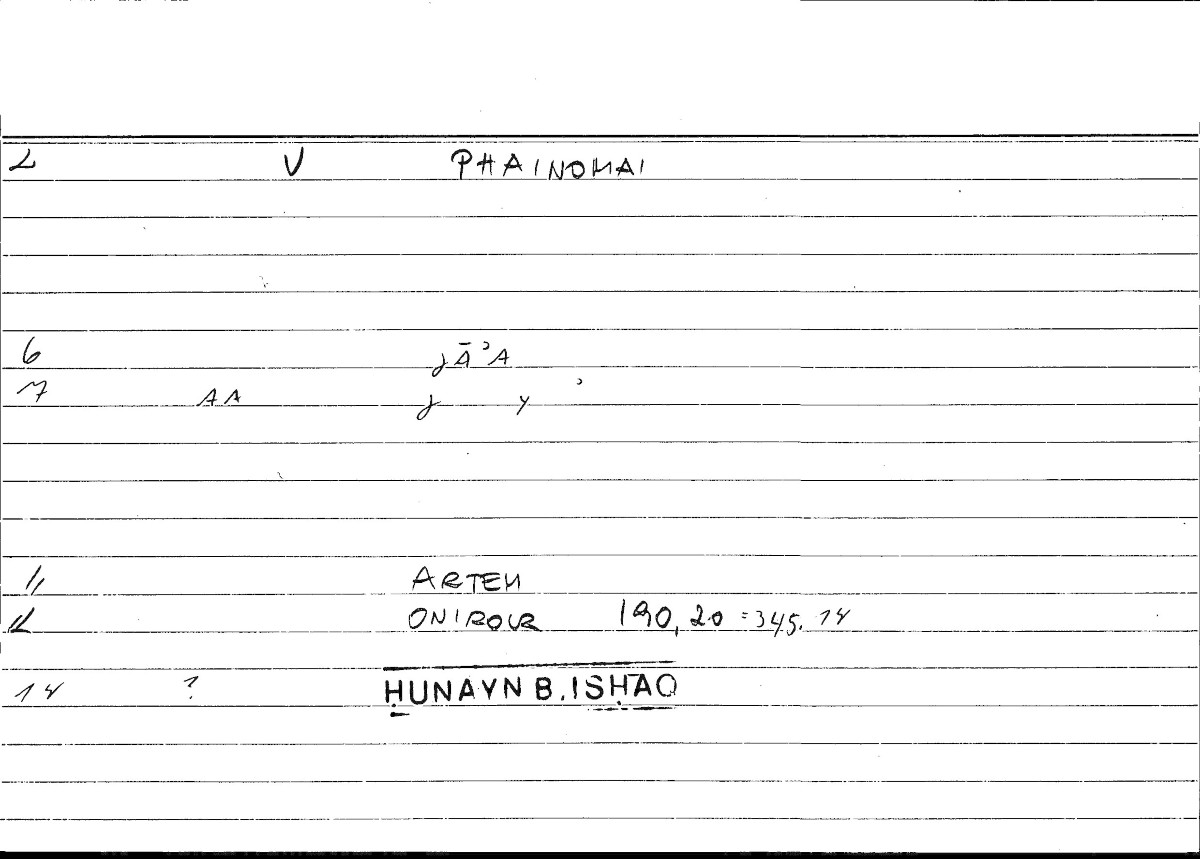 2 V PHAINOMAI
6 jĀʾA
7 AA j y ʾ
11 ARTEM
12 ONIROCR 190,20 =345.14
14 ? ḤUNAYN B. ISḤAQ